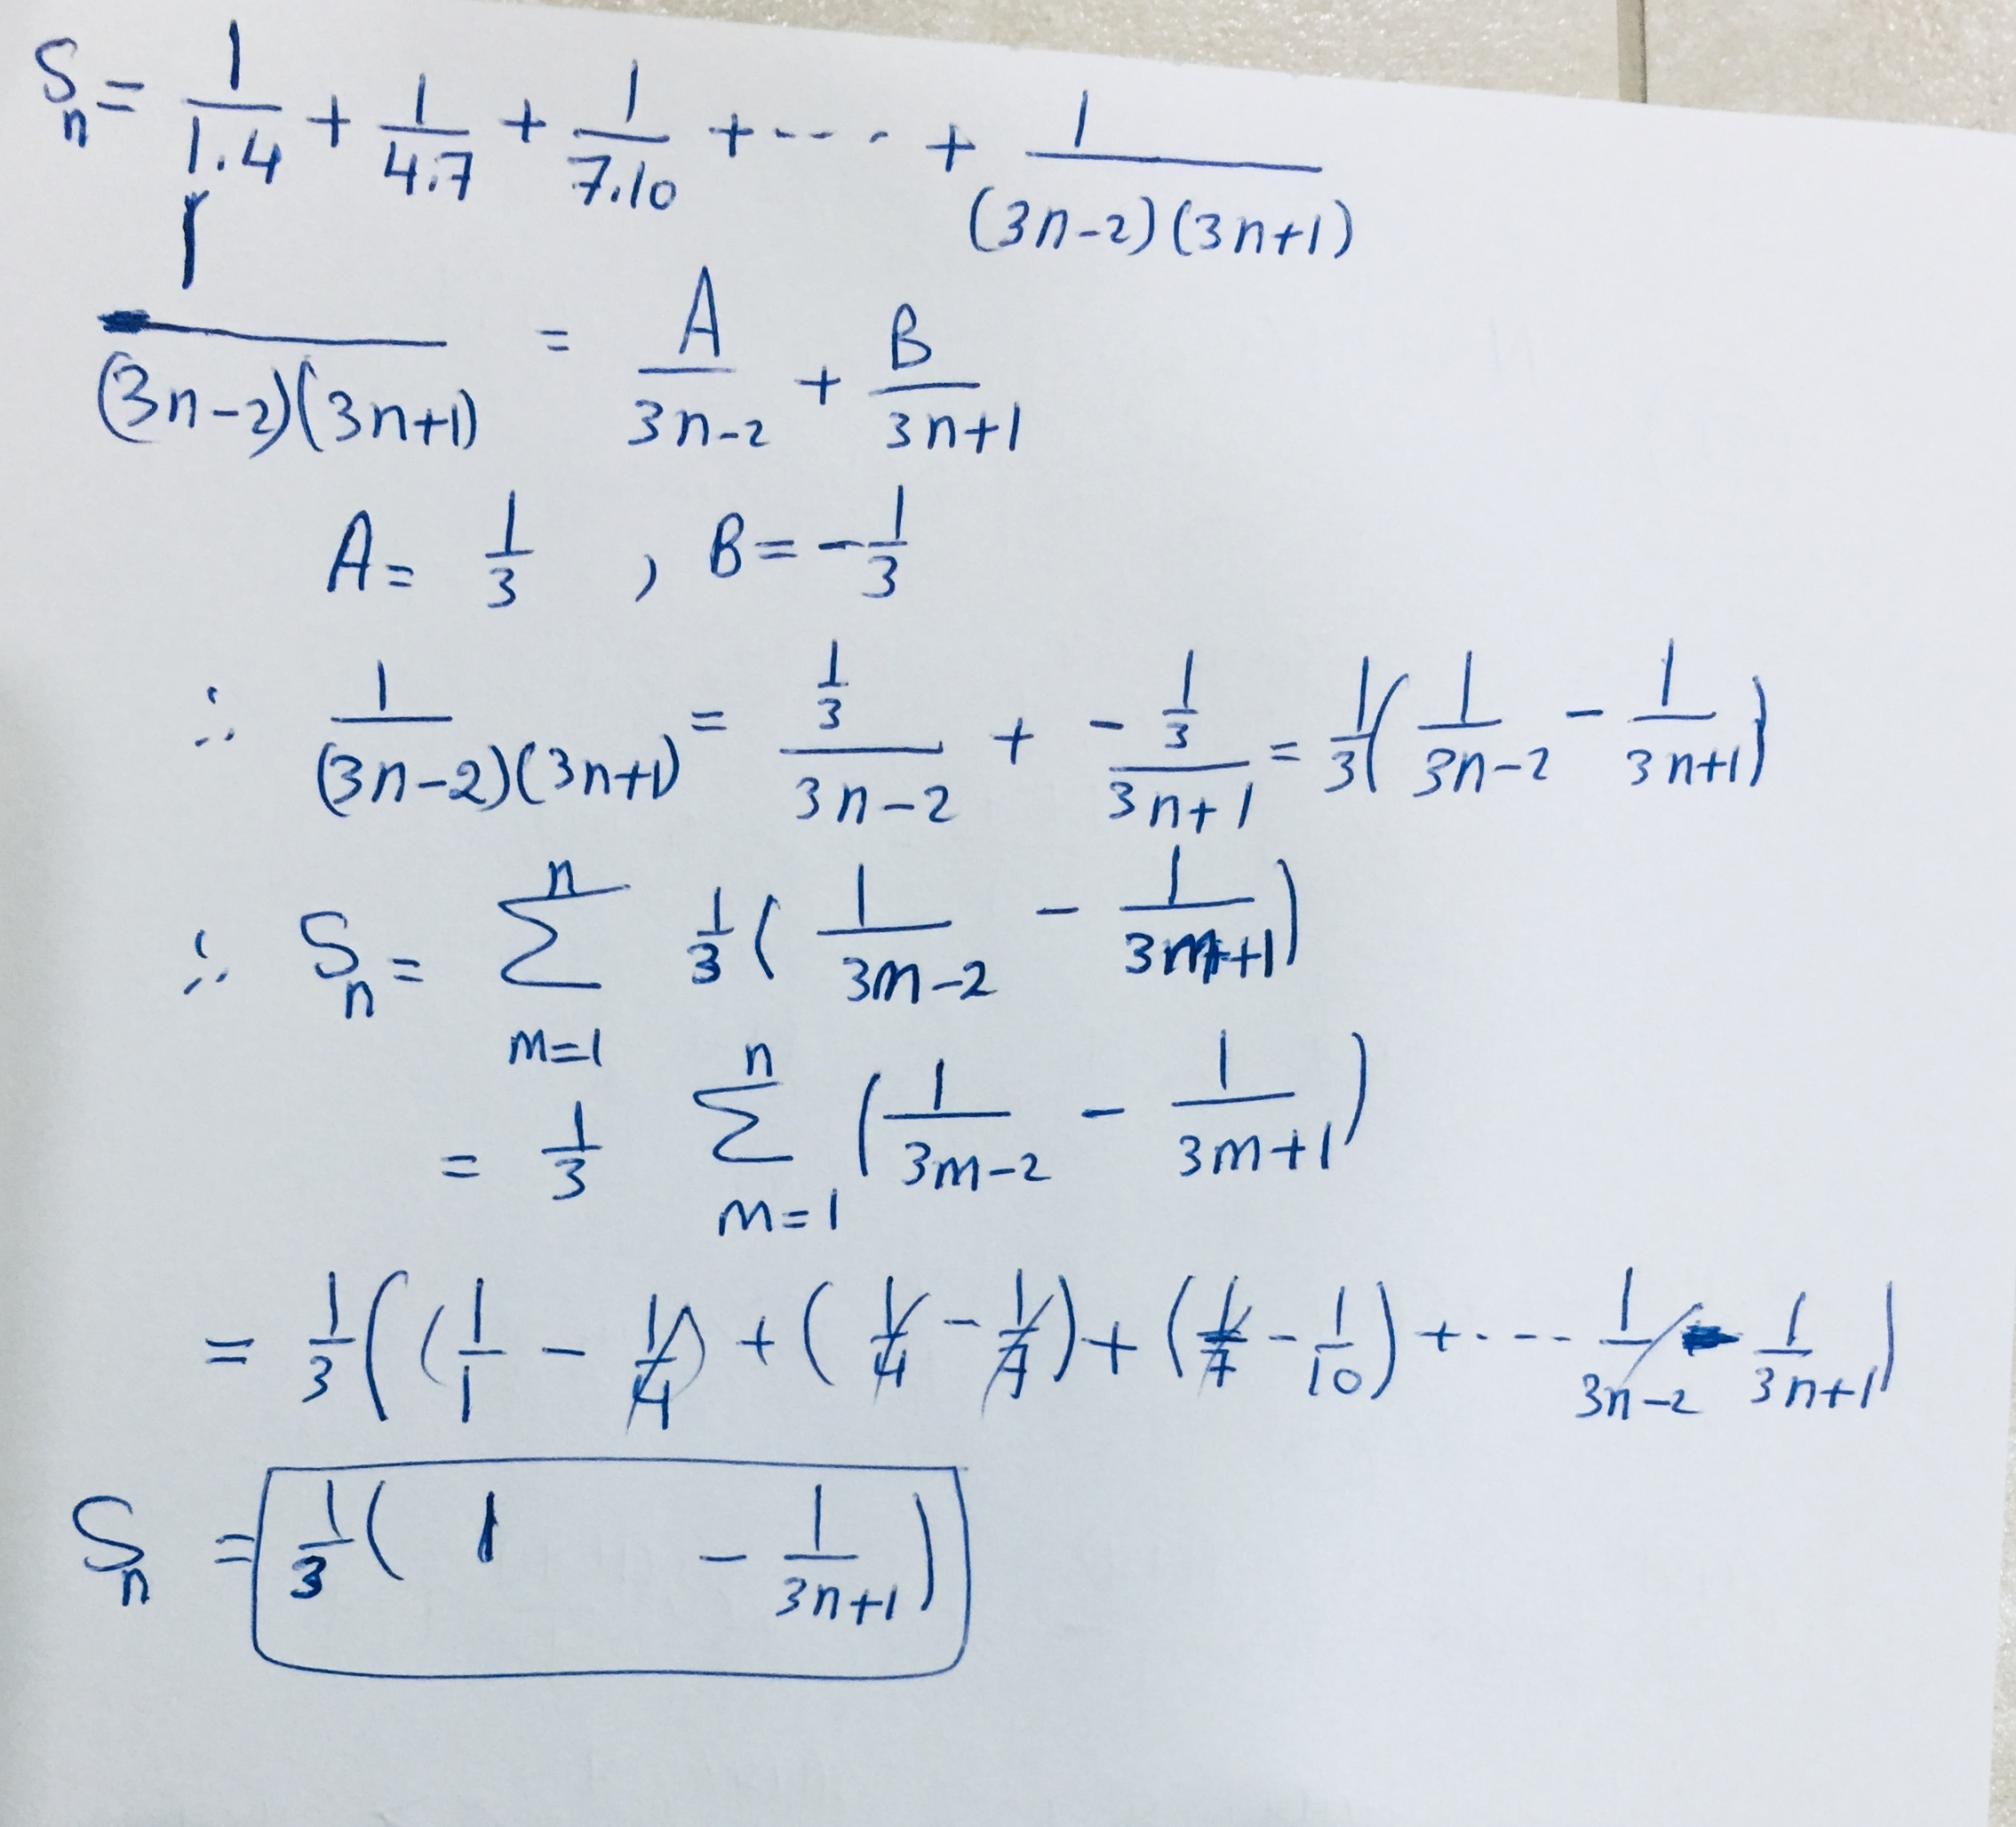 Sn = 1/1.4 + 1/4.7 + 1/7.10 + ---- + 1/(3n-2)(3n+1)
1/(3n-2)(3n+1) = A/3n-2 + B/3n+1
A = 1/3 , B = -1/3
∴ 1/(3n-2)(3n+1) = 1/3/3n-2 + -1/3/3n+1 = 1/3(1/3n-2 - 1/3n+1)
∴ Sn = n∑m=1 1/3(1/3m-2 - 1/3m+1)
= 1/3 n∑m=1 (1/3m-2 - 1/3m+1)
= 1/3((1/1 - 1/4) + (1/4 - 1/7) + (1/7 - 1/10) + ---- 1/3n-2 - 1/3n+1)
Sn = 1/3(1 - 1/3n+1)